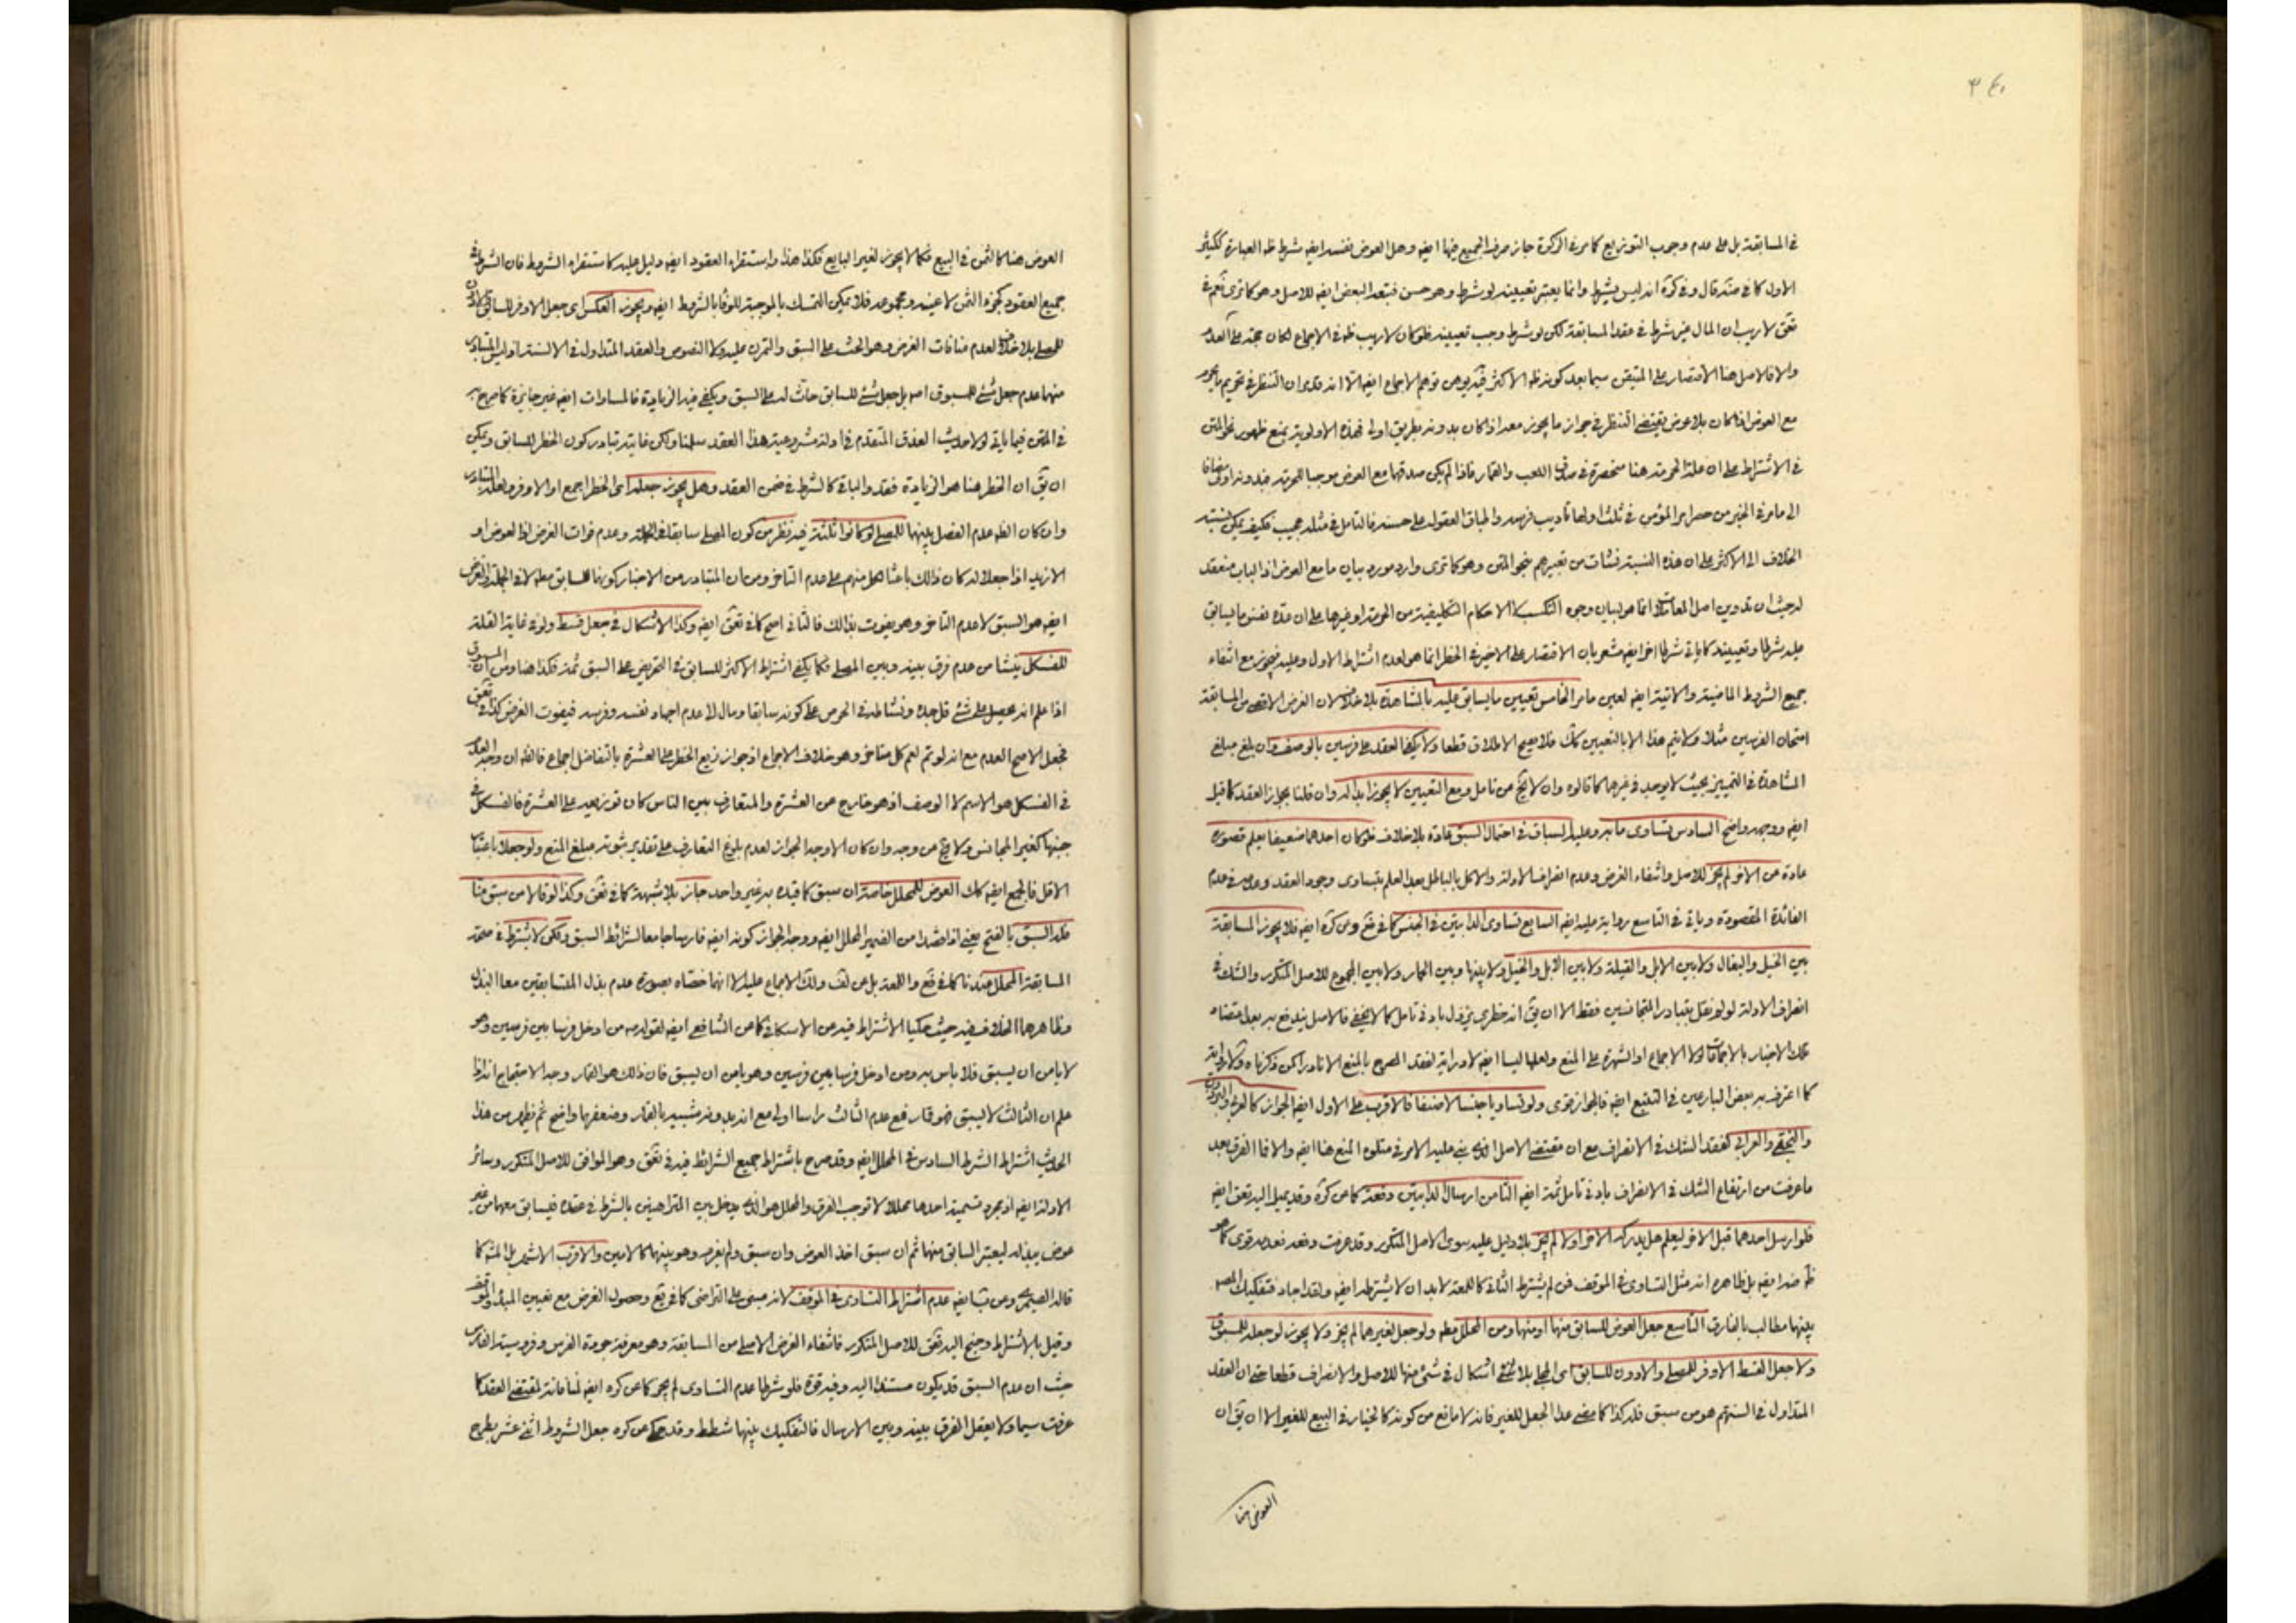 ٣٤٠
في المسابقة بل على عدم وجوب التوزيع كما مر في الزكوة جاز صرف الجميع فيها ايضا وهل العوض نفسه ايضا شرط ظ العبارة ككثير
الاول كما في قال وفي كرة انه ليس بشرط وانما يعتبر تعيينه لو شرط وهو حسن فتبعه البعض ايضا للاصل وهو كما ترى نعم في
تحق لا ريب ان المال غير شرط في عقد المسابقة لكن لو شرط وجب تعيينه فلو كان لا ريب ظ في الاجماع لكان حجة على العدم
والا فالاصل هنا الاقتصار على المتيقن سيما بعد كونه ظ الاكثر الا انه قد يدعى ان النظر في تحريم
مع العوض اذا كان بلا عوض يقتضي النظر في جواز ما يجوز معه اذا كان بدونه بطريق اولى فهذه الاولوية تمنع ظهور نحو المتن
في الاشتراط على ان علة الحرمة هنا منحصرة في صدق اللعب والقمار فاذا لم يكن صدقهما مع العوض موجبا للحرمة فبدونه اولى مضافا
الى ما مر في الخبر من حصر لهو المؤمن في ثلث اولها تأديب فرسه واطباق العقول على حسنه فالتأمل في مثله عجيب فكيف يمكن نسبته
الخلاف الى الاكثر على ان هذه النسبة نشأت من تعبيرهم بنحو المتن وهو كما ترى وارد مورد بيان ما مع العوض اذ الباب منعقد
له حيث ان تدوين اصل المعاملات انما هو لبيان وجوه التكسب لا الاحكام التكليفية من الحرمة او غيرها على ان عده نفس ما يسابق
عليه شرطا وتعيينه كما ياتي شرطا اخر ايضا مشعر بان الاقتصار على الاخير في الخطر انما هو لعدم اشتراط الاول وعليه فيجوز مع انتفاء
جميع الشروط الماضية والاتية ايضا لعين ما مر الخامس تعيين ما يسابق عليه بالمشاهدة بلا خلاف لان الغرض الاقصى من المسابقة
امتحان الفرسين مثلا ولا يتم هذا الا بالتعيين كك فلا يصح الاطلاق قطعا ولا يكفي العقد على فرسين بالوصف وان بلغ مبلغ
المشاهدة في التمييز بحيث لا يوجد في غيرها كما قالوه وان لا يخ من تأمل ومع التعيين لا يجوز ابداله وان قلنا بجواز العقد كما قيل
ايضا ووجهه واضح السادس تساوى ما به وعليه السباق في احتمال السبق عادة بلا خلاف فلو كان احدهما ضعيفا يعلم قصوره
عادة عن الاخر لم يجز للاصل وانتفاء الغرض وعدم انصراف الادلة والاكل بالباطل بعد العلم بتساوى وجود العقد وعدمه في عدم
الفائدة المقصودة وياتي في التاسع رواية عليه ايضا السابع تساوى الدابتين في الجنس كما في تع ومن كره ايضا فلا يجوز المسابقة
بين الخيل والبغال ولا بين الابل والفيلة ولا بين الابل والخيل ولا بينهما وبين الحمار ولا بين المجموع للاصل المتكرر والشك في
انصراف الادلة لو لم نقل بتبادر المتجانسين فقط الا ان يق انه خطري يزول بادنى تأمل كما لا يخفى فالاصل يندفع به بعد اعتضاد
تلك الاخبار بالاجماعات لولا الاجماع او الشهرة على المنع ولعلهما ليسا ايضا
كما اعترف به بعض البارعين في التتبع ايضا فالجواز قوى ولو تساويا جنسا لا صنفا فالاقرب على الاول ايضا الجواز كالعربي والبرذون
والبختي والعرابي لفقد الشك في الانصراف مع ان مقتضى الاصل الذي بنى عليه الامر في متلوه المنع هنا ايضا والا فالفرق بعد
ما عرفت من ارتفاع الشك في الانصراف بادنى تأمل ثمة ايضا الثامن ارسال الدابتين دفعة كما عن كره وقد يميل اليه تحق ايضا
فلو ارسل احدهما قبل الاخر ليعلم هل يدركه الاخر او لا لم يجز بلا دليل عليه سوى الاصل المتكرر وقد عرفت دفعه فعدمه قوى كما هو
ظ ضد ايضا بل ظاهره انه مثل التساوى في الموقف فمن لم يشترط الثاني كاللمعة لا بد ان لا يشترطه ايضا ولقد اجاد فتفكيك المصـ
بينهما مطالب بالفارق التاسع جعل العوض للسابق منهما او منهما ومن المحلل مطـ ولو جعل لغيرهما لم يجز ولا يجوز لو جعله للمسبوق
ولا جعل القسط الاوفر للمصلي والادون للسابق اى المجلي بلا اشكال في شئ منها للاصل والانصراف قطعا حتى ان العقد
المتداول في السنتهم هو من سبق فله كذا كما مضى عدا الجعل للغير فانه لا مانع من كونه كالخيار في البيع للغير الا ان يق ان
العوض هنا
العوض هنا كالثمن في البيع فكما لا يجوز لغير البايع فكذا هذا واستقراء العقود ايضا دليل عليه كاستقراء الشروط فان الشرط في
جميع العقود كجزء الثمن لا عينه ومجموعه فلا يمكن التمسك بالموجبة للوفا بالشروط ايضا ويجوز العكس اى جعل الاوفر للسابق والادون
للمصلي بلا خلاف لعدم منافات الغرض وهو الحث على السبق والتمرن عليه ولا النصوص والعقد المتداول في الالسنة اذ ليس المتبادر
منها عدم جعل شئ للمسبوق اصلا بل جعل شئ للسابق حاث له على السبق ويكفي فيه الزيادة فالمساوات ايضا غير جائزة كما صرح به
في المتن فيما ياتي لولا حديث العذق المتقدم في ادلة مشروعية هذا العقد سلمنا ولكن غايته تبادر كون الخطر للسابق ويمكن
ان يق ان الخطر هنا هو الزيادة فقط والباقي كالشرط في ضمن العقد وهل يجوز جعله اى الخطر اجمع او الاوفر
وان كان الظ عدم الفصل بينهما للمصلي لو كانوا ثلثة فيه نظر من كون المصلي سابقا في الجملة وعدم فوات الغرض اذ العوض او
الازيد اذا جعلا له كان ذلك باعثا لكل منهم على عدم التاخر ومن ان المتبادر من الاخبار كونها للسابق مطلقا لا في الجملة والغرض
ايضا هو السبق لا عدم التاخر وهو يفوت بذلك فالثاني اصح كما في تحق ايضا وكذا الاشكال في جعل قسط ولو في غاية القلة
للفسكل ينشأ من عدم فرق بينه وبين المصلي فكما يكفي اشتراط الاكثر للسابق في التحريض على السبق ثمة فكذا هنا ومن ان المسبوق
اذا علم انه يحصل على شئ قل جده ونشاطه في الحرص على كونه سابقا ومال لا عدم اجهاد نفسه وفرسه فيفوت الغرض كذا في تحق
فجعل الاصح العدم مع انه لو تم لعم كل متأخر وهو خلاف الاجماع اذ جواز توزيع الخطر على العشرة بالتفاضل اجماع فالظ ان وجه العدم
في الفسكل هو الاسم لا الوصف اذ هو خارج عن العشرة والمتعارف بين الناس كان توزيعه على العشرة فالفسكل في
جنبها كغير المجانس ولا يخ من وجه وان كان الاوجه الجواز لعدم بلوغ التعارف على تقدير ثبوته مبلغ المنع ولو جعلا باعتبار
الاقل فالجميع ايضا كك العوض للمحلل خاصة ان سبق كما قيده به غير واحد جاز بلا شبهة كما في تحق وكذا لو قالا من سبق منا
فله السبق بالفتح يعني اذا قصدا من الضمير المحلل ايضا ووجه الجواز كونه ايضا فارسا جامعا لشرائط السبق ولكن لا يشترط في صحة
المسابقة المحلل عندنا كما في تع واللمعة بل عن لف وذلك الاجماع عليه الا انهما خصاه بصورة عدم بذل المتسابقين معا البذل
وظاهرهما الخلاف فيه حيث حكيا الاشتراط فيه عن الاسكافي كما عن الشافعي ايضا لقوله ص من ادخل فرسا بين فرسين وهو
لا يأمن ان يسبق فلا باس به ومن ادخل فرسا بين فرسين وهو يأمن ان يسبق فان ذلك هو القمار وجه الاحتجاج انه اذا
علم ان الثالث لا يسبق فهو قمار فمع عدم الثالث راسا اولى مع انه بدونه شبيه بالقمار وضعفها واضح ثم يظهر من هذا
الحديث اشتراط الشرط السادس في المحلل ايضا وقد صرح باشتراط جميع الشرائط فيه في تحق وهو الموافق للاصل المتكرر وسائر
الادلة ايضا اذ مجرد تسمية احدهما محللا لا توجب الفرق والمحلل هو الذي يدخل بين المتراهنين بالشرط في عقده فيسابق معهما من غير
عوض يبذله ليعتبر السابق منهما ثم ان سبق اخذ العوض وان سبق لم يغرم وهو بينهما كالامين والاقرب الاشهر بل المشـ كما
قاله الصيمري وعن ايضا عدم اشتراط التساوى في الموقف لانه مبنى على التراضى كما في تع وحصول الغرض مع تعيين المبدء
وقيل بالاشتراط وجنح اليه تحق للاصل المتكرر فانتفاء الغرض الاصلي من المسابقة وهو معرفة جودة الفرس وفروسية الفارس
حيث ان عدم السبق قد يكون مستندا اليه وفيه قوة فلو شرطا عدم التساوى لم يجز كما عن كره ايضا لمنافاته لمقتضى العقد كما
عرفت سيما ولا يعقل الفرق بينه وبين الارسال فالتفكيك بينهما شطط وقد حكى عن كره جعل الشروط اثنى عشر بطرح